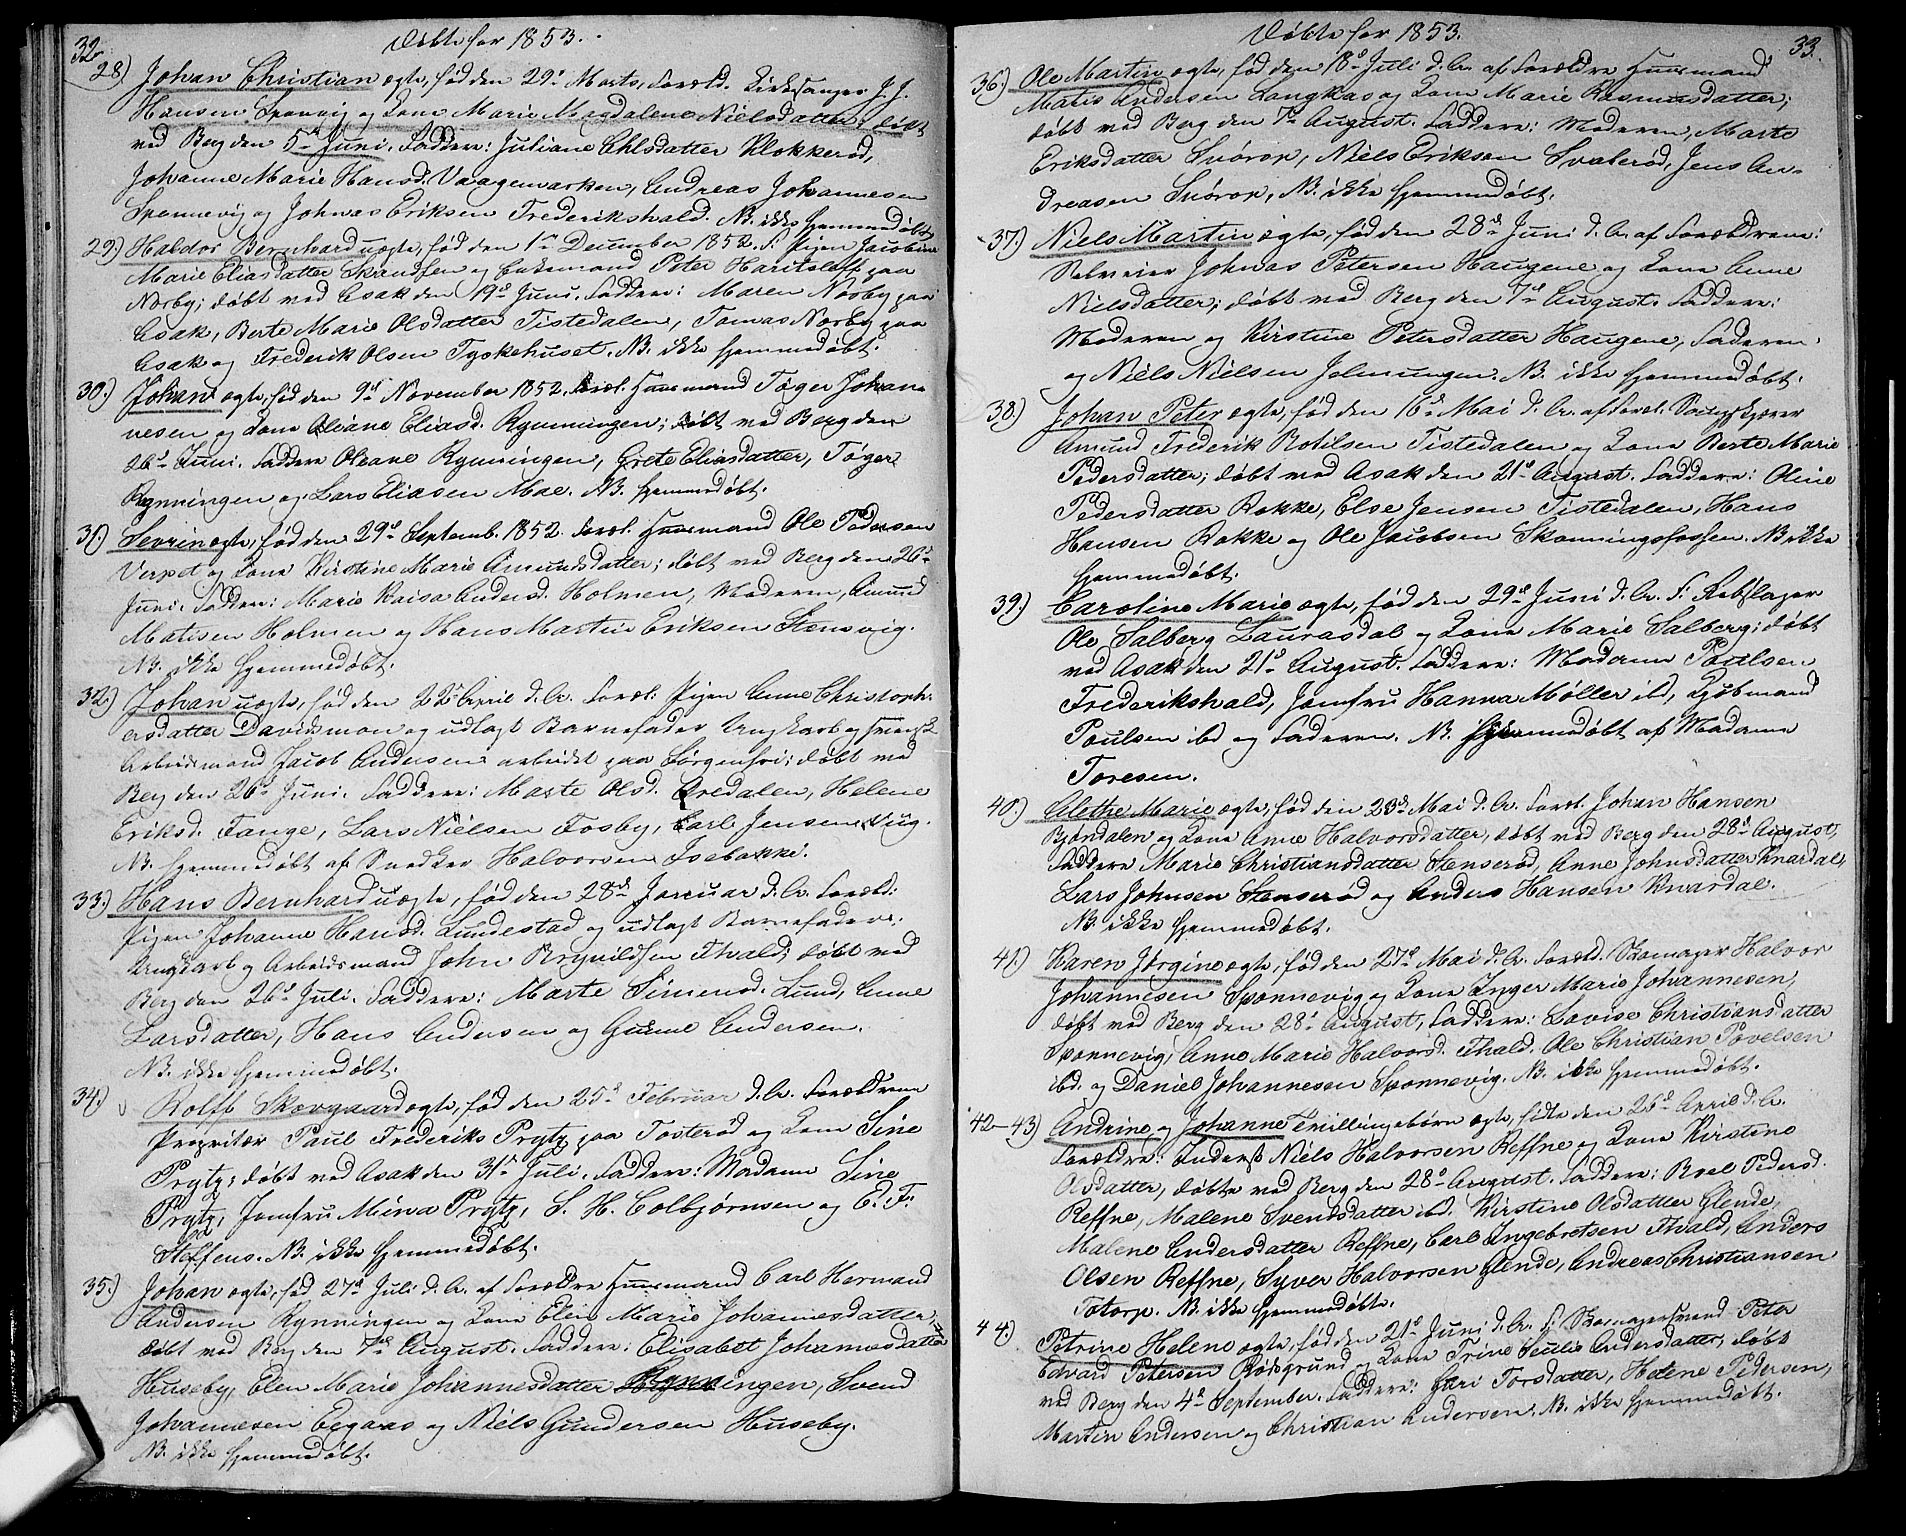 32.
Döbte for 1853.
28) Johan Christian ægte, fød den 29de Marts, Foræld. Kirkesanger J. J.
Hansen Sponvig og Kone Marie Magdalene Nielsdatter; döbt
ved Berg den 5te Juni. Faddere: Juliane Ehlsdatter Klokkerød,
Johanne Marie Hansd. Vaagemarken, Andreas Johannesen
Sponnevig og Johnas Eriksen Frederikshald. NB. ikke hjemmedøbt.
29) Haldor Bernhard uægte, fød den 1ste December 1852. F: Pigen Jacobine
Marie Eliasdatter Skandsen og Enkemand Peter paa
Norby; döbt ved Asak den 19de Juni. Faddere: Maren Norby paa
Asak, Berte Marie Olsdatter Tistedalen, Tomas Norby paa
Asak og Frederik Olsen Tyskehuset. NB. ikke hjemmedøbt.
30.) Johan ægte, fød den 9de November 1852. Foræl. Huusmand Töger Johan-
nesen og Kone Oliane Eliasd. Rynningen; döbt ved Berg den
26de Juni. Faddere Oleane Rynningen, Grete Eliasdatter, Töger
Rynningen og Lars Eliasen Mae. NB. hjemmedöbt.
31.) Sevrin ægte, fød den 29de Septemb. 1852. Foræl. Huusmand Ole Pedersen
Verpet og Kone Kirstine Marie Amundsdatter; döbt ved Berg den 26de
Juni. Faddere: Marie Raisa Andersd. Holmen, Moderen, Amund
Matisen Holmen og Hans Martin Eriksen Stensvig.
NB. ikke hjemmedøbt.
32.) Johan uægte, fød den 22de April d. A. Foræl. Pigen Anne Christoph-
ersdatter Davidsmon og udlagt Barnefader Ungkarl og svensk
Arbeidsmand Jacob Andersen arbeidet paa Sorgenfri; döbt ved
Berg den 26de Juni. Faddere: Marte Olsd. Aredalen, Helene
Eriksd. Tange, Lars Nielsen Fosby, Carl Jensen Aug.
NB. hjemmedöbt af Snedker Halvorsen Isebakke.
33.) Hans Bernhard uægte, fød den 28de Januar d. A. Foræld:
Pigen Johanne Hansd. Lundestad og udlagt Barnefader:
Ungkarl og Arbeidsmand John Brynildsen Fhald; döbt ved
Berg den 26de Juli. Faddere: Marte Simensd. Lund, Anne
Larsdatter, Hans Andersen og Gunne Andersen.
NB. ikke hjemmedöbt.
34.) Rolff Skovgaard ægte, fød den 25de Februar d. A. Forældrene
Proprietær Paul Frederiks Prytz paa Tosterød og Kone Sine
Prytz; döbt ved Asak den 31te Juli. Faddere: Madame Sine
Prytz, Jomfru Mina Prytz, S. H. Colbjørnsen og C. F.
Steffens. NB. ikke hjemmedøbt.
35.) Johan ægte, fød 27de Juli d. A. af Forældre Huusmand Carl Herman
Andersen Rynningen og Kone Elen Marie Johannesdatter;
döbt ved Berg den 7de August. Faddere: Elisabet Johannesdatter
Huseby, Elen Marie Johannesdatter Rynningen, Svend
Johannesen Eegaas og Niels Gundersen Huseby.
NB. ikke hjemmedøbt.
Döbte for 1853.
33.
36.) Ole Martin ægte, fød den 18de Juli d. A. af Forældre Huusmand
Matis Andersen Langkas og Kone Marie Rasmusdatter;
döbt ved Berg den 7de August. Faddere: Moderen, Marte
Eriksdatter Svörop, Niels Eriksen Svaleröd, Jens An-
dreasen Svörop, NB. ikke hjemmedöbt.
37.) Niels Martin ægte, fød den 28de Juni d. A. af Forældrene:
Selveier Johnas Petersen Haugene og Kone Anne
Nielsdatter; döbt ved Berg den 7de August. Faddere:
Moderen og Kirstine Petersdatter Haugene, Faderen
og Niels Nielsen Jelmungen. NB. ikke hjemmedöbt.
38.) Johan Peter ægte, fød den 16de Mai d. A. af Foræl. Saugskjærer
Amund Frederik Botilsen Tistedalen og Kone Berte Marie
Pedersdatter; döbt ved Asak den 21de August. Faddere: Oline
Pedersdatter Rokke, Else Jensen Tistedalen, Hans
Hansen Rokke og Ole Jacobsen Skonningsfossen. NB ikke
hjemmedöbt.
39.) Caroline Marie ægte, fød den 29de Juni d. A. F: Rebslager
Ole Salberg Laurasdal og Kone Marie Salberg; döbt
ved Asak den 21de August. Faddere: Madame Poulsen
Frederikshald, Jomfru Hanna Møller ibd, Kjöbmand
Poulsen ibd og Faderen. NB. hjemmedöbt af Madame
Toresen.
40.) Alethe Marie ægte, fød den 23de Mai d. A. Foræl. Johan Hansen
Bjøndalen og Kone Anne Halvorsdatter, döbt ved Berg den 28de August,
Faddere Marie Christiansdatter Stenserød, Anne Johnsdatter Knardal,
Lars Johnsen Stenserød og Anders Hansen Knardal.
NB. ikke hjemmedöbt.
41.) Karen Jørgine ægte, fød den 27de Mai d. A. Foræld. Skomager Halvor
Johannesen Sponnevig og Kone Inger Marie Johannesen,
döbt ved Berg den 28de August, Faddere: Lovise Christiansdatter
Sponnevig, Anne Marie Halvorsd. Fhald. Ole Christian Povelsen
ibd. og Daniel Johannesen Sponnevig. NB. ikke hjemmedöbt.
42-43) Andrine og Johanne Tvillingebörn ægte, födte den 26de April d. A.
Forældre: Inderst Niels Halvorsen Reffne og Kone Kirstine
Olsdatter, döbte ved Berg den 28de August. Faddere: Boel Pedersd.
Reffne, Malene Svendsdatter ibd. Kirstine Olsdatter Glende,
Malene Andersdatter Reffne, Carl Ingebretsen Fhald, Anders
Olsen Reffne, Syver Halvorsen Glende, Andreas Christiansen
Totorp. NB. ikke hjemmedöbte.
44.) Petrine Helene ægte, fød den 21de Juni d. A. F: Skomagersvend Peter
Edvard Petersen Rödsgrund og Kone Trine Andersdatter; döbt
ved Berg den 4de September. Faddere: Guri Torsdatter, Helene Pedersen,
Martin Andersen og Christian Andersen. NB. ikke hjemmedöbt.